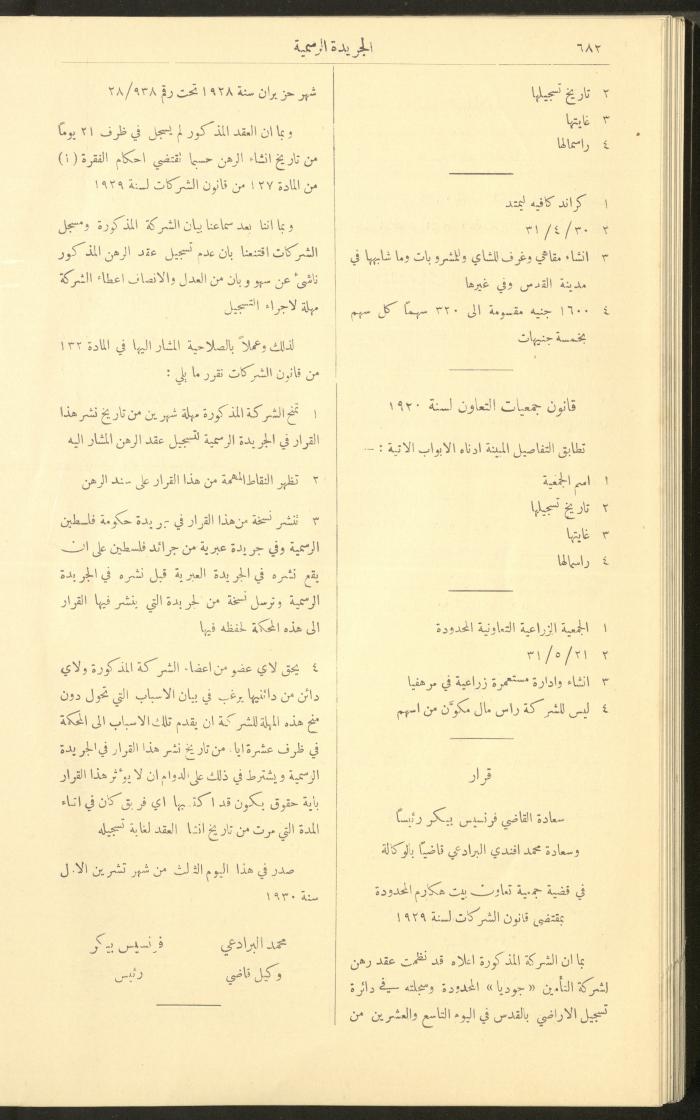 ٦٨٢
الجريدة الرسمية
٢ تاريخ تسجيلها
٣ غايتها
٤ راسمالها
١ كراند كافيه ليمتد
٢ ٣١/٤/٣٠
٣ انشاء مقاهي وغرف للشاي وللمشروبات وما شابهها في
مدينة القدس وفي غيرها
٤ ١٦٠٠ جنيه مقسومة الى ٣٢٠ سهماً كل سهم
بخمسة جنيهات
قانون جمعيات التعاون لسنة ١٩٢٠
تطابق التفاصيل المبينة ادناه الابواب الاتية : —
١ اسم الجمعية
٢ تاريخ تسجيلها
٣ غايتها
٤ راسمالها
١ الجمعية الزراعية التعاونية المحدودة
٢ ٣١/٥/٢١
٣ انشاء وادارة مستعمرة زراعية في مرهفيا
٤ ليس للشركة راس مال مكوَّن من اسهم
قرار
سعادة القاضي فرنسيس بيكر رئيسًا
وسعادة محمد افندي البرادعي قاضيًا بالوكالة
في قضية جمعية تعاون بيت هكارم المحدودة
بمقتضى قانون الشركات لسنة ١٩٢٩
بما ان الشركة المذكورة اعلاه قد نظمت عقد رهن
لشركة التأمين «جوديا» المحدودة وسجلته في دائرة
تسجيل الاراضي بالقدس في اليوم التاسع والعشرين من
شهر حزيران سنة ١٩٢٨ تحت رقم ٢٨/٩٣٨
وبما ان العقد المذكور لم يسجل في ظرف ٢١ يومًا
من تاريخ انشاء الرهن حسبما تقتضي احكام الفقرة (١)
من المادة ١٢٧ من قانون الشركات لسنة ١٩٢٩
وبما اننا بعد سماعنا بيان الشركة المذكورة ومسجل
الشركات اقتنعنا بان عدم تسجيل عقد الرهن المذكور
ناشئ عن سهو وبان من العدل والانصاف اعطاء الشركة
مهلة لاجراء التسجيل
لذلك وعملاً بالصلاحية المشار اليها في المادة ١٣٢
من قانون الشركات نقرر ما يلي :
١ تمنح الشركة المذكورة مهلة شهرين من تاريخ نشر هذا
القرار في الجريدة الرسمية لتسجيل عقد الرهن المشار اليه
٢ تظهر النقاط المهمة من هذا القرار على سند الرهن
٣ تنشر نسخة من هذا القرار في جريدة حكومة فلسطين
الرسمية وفي جريدة عبرية من جرائد فلسطين على ان
يقع نشره في الجريدة العبرية قبل نشره في الجريدة
الرسمية وترسل نسخة من لجريدة التي ينشر فيها القرار
الى هذه المحكمة لحفظه فيها
٤ يحق لاي عضو من اعضاء الشركة المذكورة ولاي
دائن من دائنيها يرغب في بيان الاسباب التي تحول دون
منح هذه المهلة للشركة ان يقدم تلك الاسباب الى المحكمة
في ظرف عشرة ايام من تاريخ نشر هذا القرار في الجريدة
الرسمية ويشترط في ذلك على الدوام ان لا يؤثر هذا القرار
باية حقوق يكون قد اكتسبها اي فريق كان في اثناء
المدة التي مرت من تاريخ انشا العقد لغاية تسجيله
صدر في هذا اليوم الثالث من شهر تشرين الاول
سنة ١٩٣٠
محمد البرادعي فرنسيس بيكر
وكيل قاضي رئيس